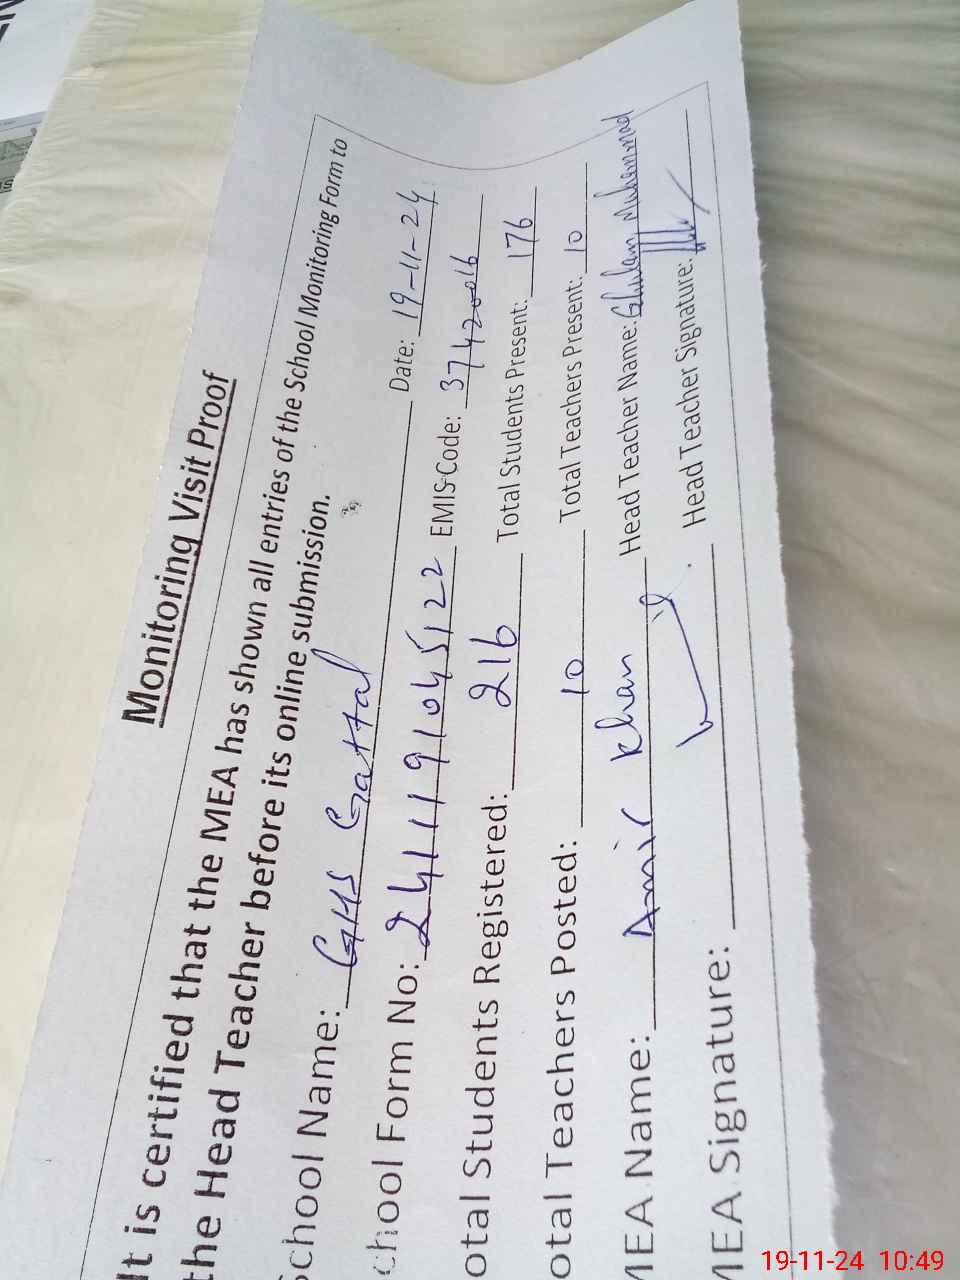 Monitoring Visit Proof
It is certified that the MEA has shown all entries of the School Monitoring Form to
the Head Teacher before its online submission.
School Name: GHS Gattal Date: 19-11-24
chool Form No: 2411191045122 EMIS Code: 37420016
otal Students Registered: 216 Total Students Present: 176
otal Teachers Posted: 10 Total Teachers Present: 10
MEA Name: Amir Khan Head Teacher Name: Ghulam Muhammad
MEA Signature: Head Teacher Signature:
19-11-24 10:49